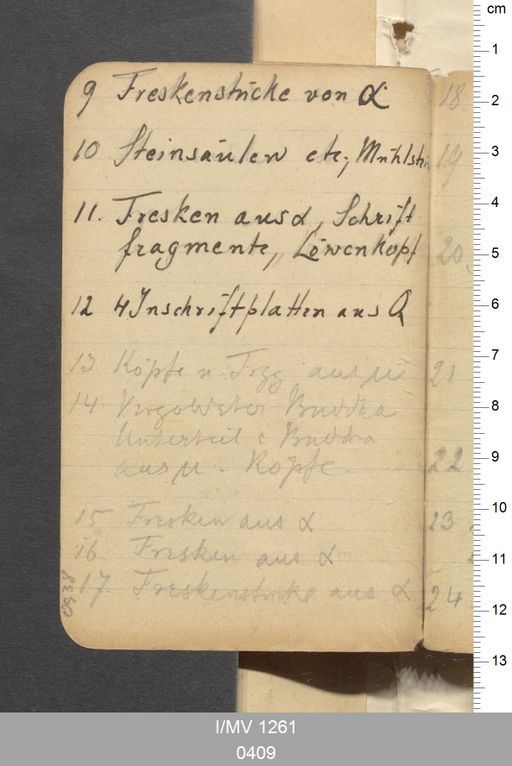 9 Freskenstücke von α
10 Steinsäulen etc, Mühlst
11. Fresken aus α, Schrift
fragmente, Löwenkopf
12 4 Inschriftplatten aus Q
13 Köpfe u aus μ
14 Vergoldeter Buddha
Unterteil e Buddha
aus μ. Köpfe
15 Fresken aus α
16 Fresken aus α
17. Freskenstücke aus α
18
19
20
21
22
23
24
cm
1
2
3
4
5
6
7
8
9
10
11
12
13
I/MV 1261
0409